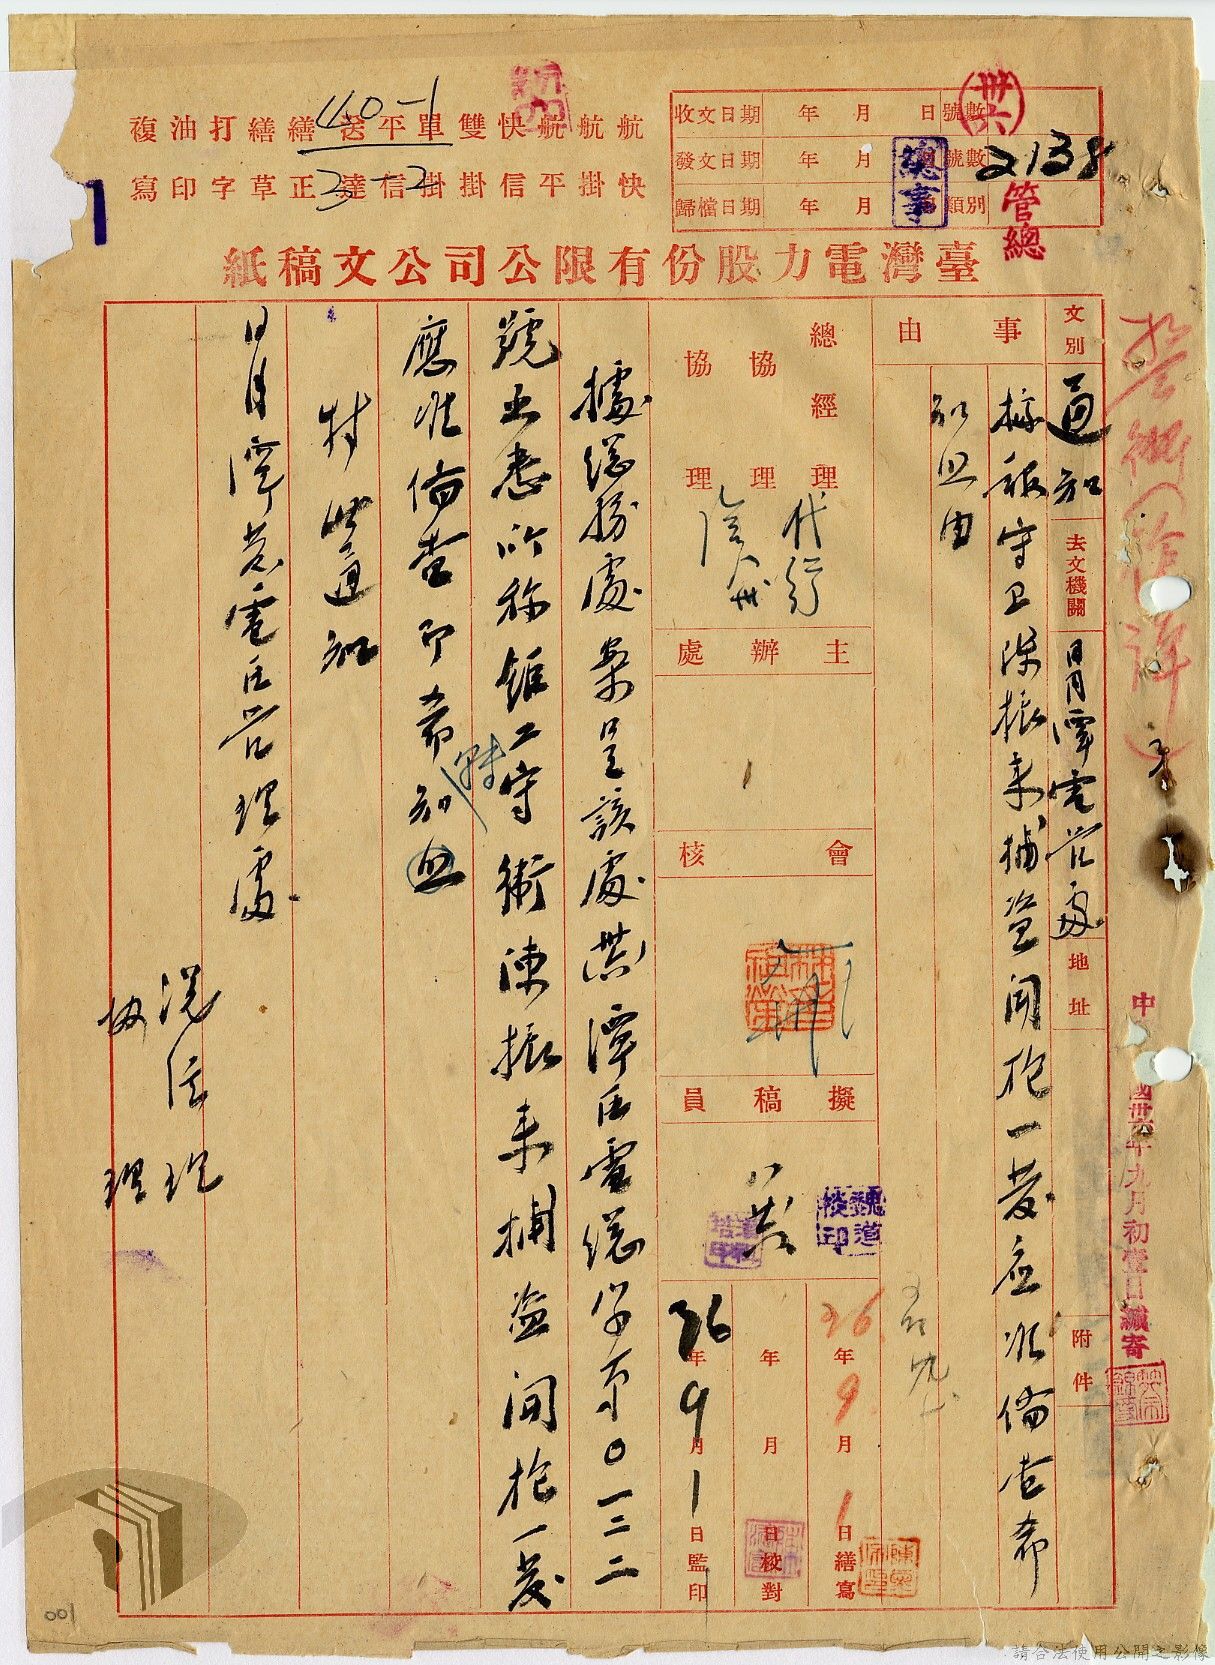 航航航快雙單平送繕繕打油複
快掛平信掛掛信達正草字印寫
110-1
3-2
收文日期 年 月 日 號數
發文日期 年 月 號數
歸檔日期 年 月 類別
卅六
2138
管總
總事
臺灣電力股份有限公司公文稿紙
文別 通知
去文機關 日月潭電管處
地址
附件
事由
據報守卫陳振来捕盜開砲一發应准備查希
知照由
總經理
協理
協理
代行
主辦處
會核
擬稿員
魏道
印
36年9月1日繕寫
年 月 日校對
36年9月1日監印
據總務處案呈該處世潭区電總字第0一二二
號呈悉所称鉅工守衛陳振来捕盜開槍一發
應准備查即希知照
特此通知
日月潭发電区管理處
總經理
協理
中 國卅六年九月初壹日繕寄
001
請合法使用公開之影像